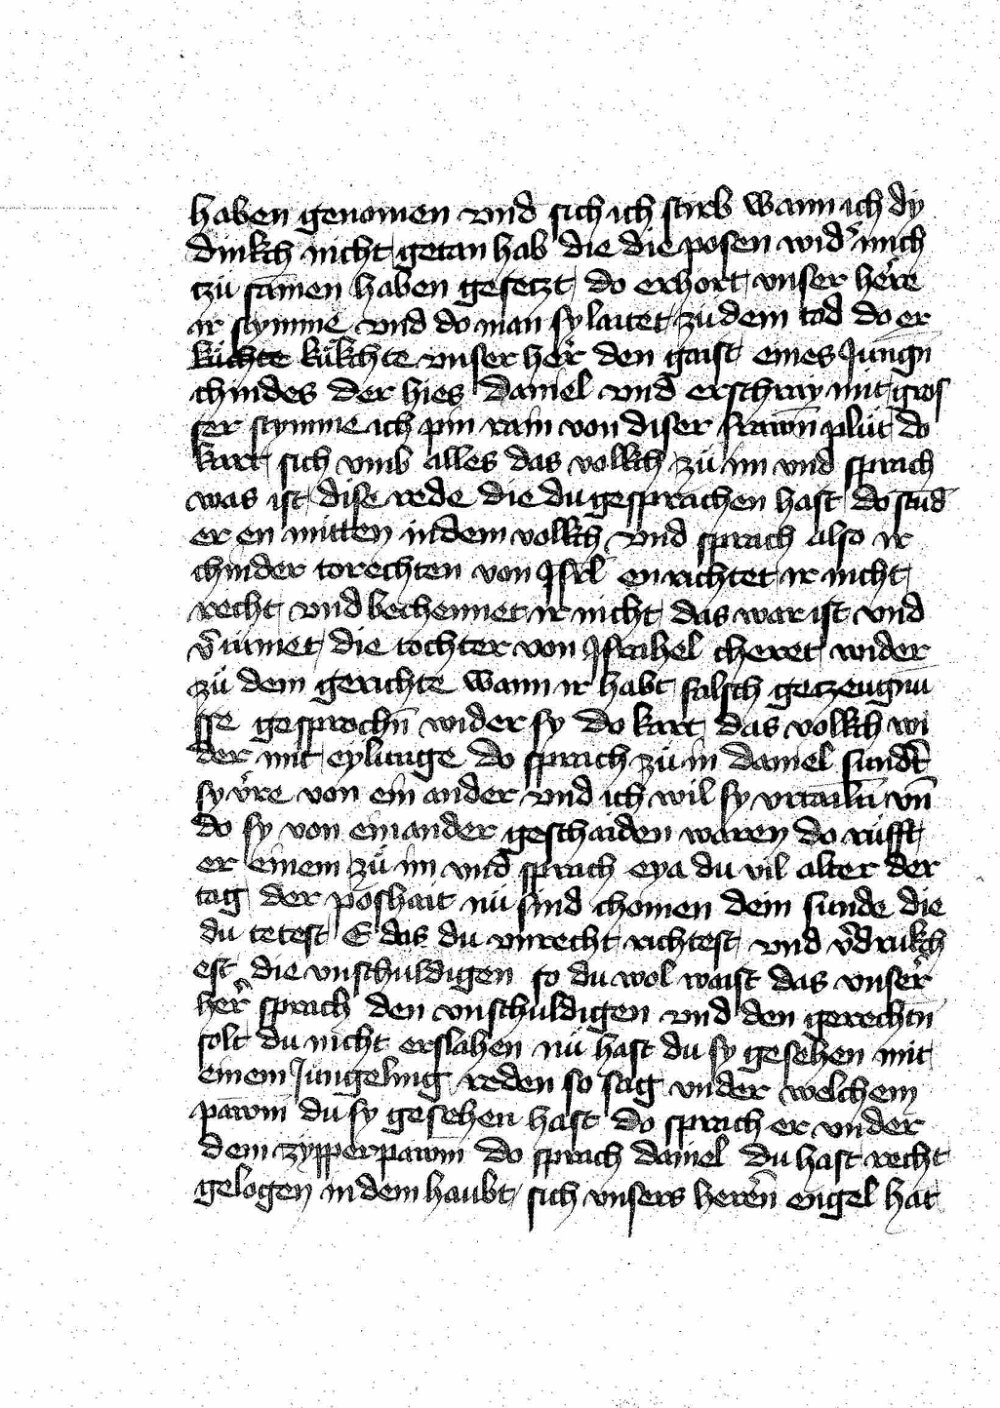 haben genomen vnd sich ich stirb wann ich dy
dinkch nicht getan hab die die posen wid̕ mich
tzü samen haben gesetzt do erhort vnser herre
ir stymme vnd do man sy laitet zu dem tod do er
küchte kükchte vnser her̕ den gaist eines Jungn̄
chindes der hies daniel vnd erschray mit gros
ser stymme ich pin rain von diser frawn̄ plüt do
kart sich vmb alles das volkch zü im vnd sprach
was ist dise rede die du gesprachen hast do stūd
er en mitten in dem volkch vnd sprach also ir
chinder torechten von Isrl̄ en richtet ir nicht
recht vnd bechennet ir nicht das war ist vnd
v̕ tumet die tochter von Israhel cheret wider
zü dem gerichte wann ir habt falsch getzeugnu
sse gesprochn̄ wider sy do kart das volkch wi
der mit eylunge do sprach zü in daniel sundt̕
sy v̕re von ein ander vnd ich wil sy vrtailn̄ vn̄
do sy von einander geschaiden waren do rüfft
er einem zü im vnd sprach eya du vil alter der
tag der poshait nü sind chomen dein sunde die
du tetest E das du vnrecht richtest vnd v̕drukch
est die vnschuldigen so du wol waist das vnser
her̕ sprach den vnschuldigen vnd den gerechtn̄
solt du nicht erslahen nü hast du sy gesehen mit
einem Jüngeling reden so sag vnder welchem
pawm du sy gesehen hast do sprach er vnder
dem zypperpawm do sprach daniel du hast recht
gelogen in dem haubt sich vnsers heren̄ engel hat